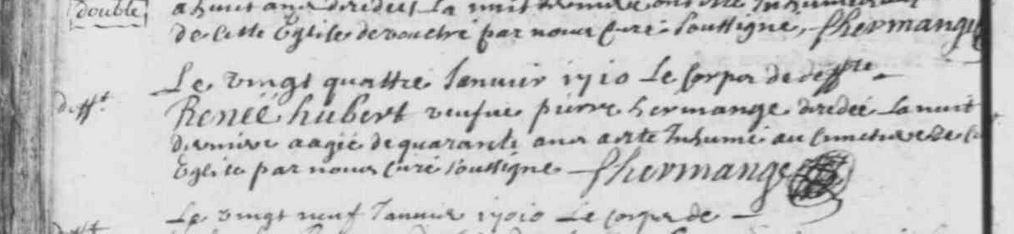 double
de cette Eglise de vouctré par nous curé soussigne, fhermange
Le vingt quattre Januier 1710 Le Corps de deffte
defft
Renée hubert veufue pierre hermange decedée La nuit
derniere aagée de quarante ans a este Inhumé au Cimetiere de
Eglise par nous Curé soussigne fhermange
Le vingt neuf Januier 1710 Le Corps de